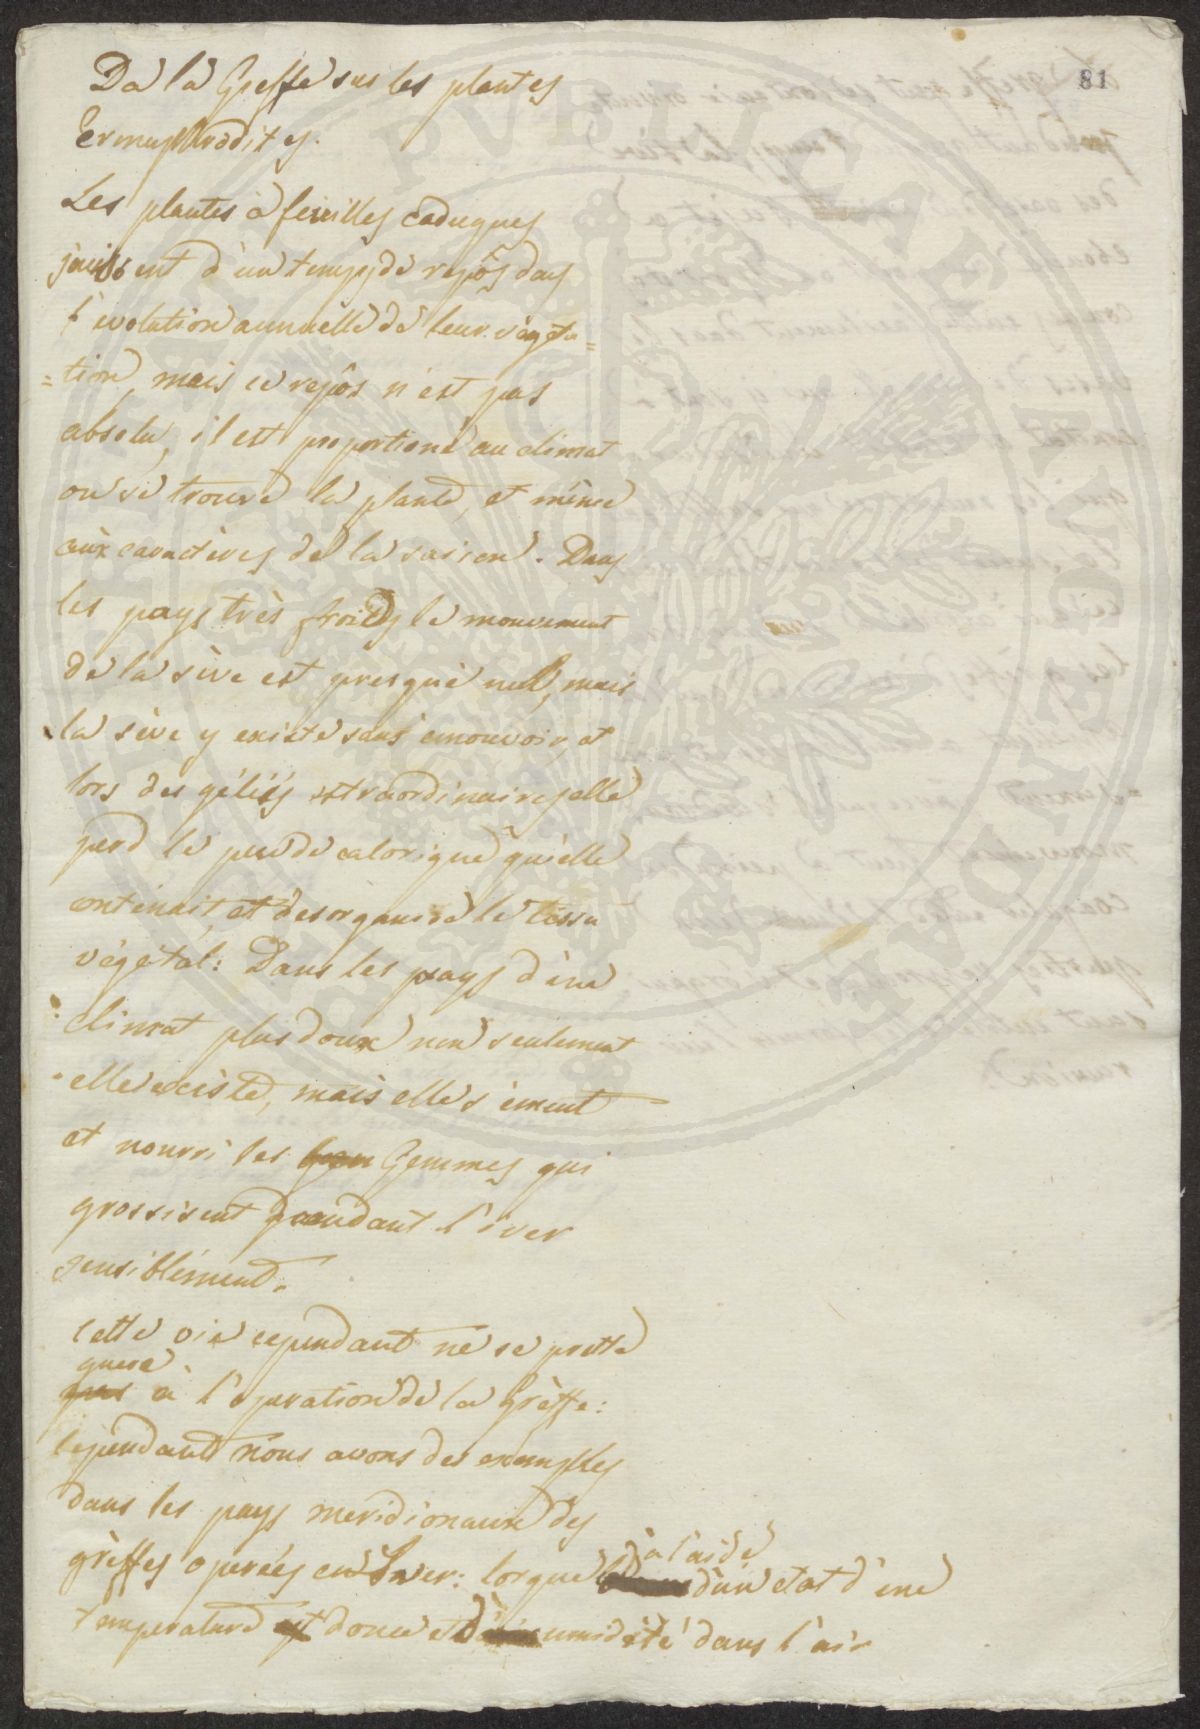 81
De la Greffe sur les plantes
Ermaphrodites.
Les plantes à feuilles caduques
jouissent d'un temps de repôs dans
l'evolution annuelle de leur végéta=
=tion, mais ce repôs n'est pas
absolu, il est proportioné au climat
ou se trouve la plante, et même
aux caractères de la saison. Dans
les pays très froids le mouvement
de la sève est presque null, mais
la sève y existe sans emouvoir, et
lors des gélées extraordinaires elle
perd le peu de calorique qu'elle
contenait, et desorganise le tissu
végétal: Dans les pays d'une
climat plus doux non seulement
elle existe, mais elle s'emeut
et nourri les Gemmes qui
grossisent pendant l'iver
sensiblement.
Cette oie cependant ne se prette
guere
pas à l'operation de la Grèffe:
Cependant nous avons des exemples
dans les pays meridionaux des
grèffes operées en Iver: lorque à l'aide d'un etat d'une
temperature douce et d'umidité dans l'air